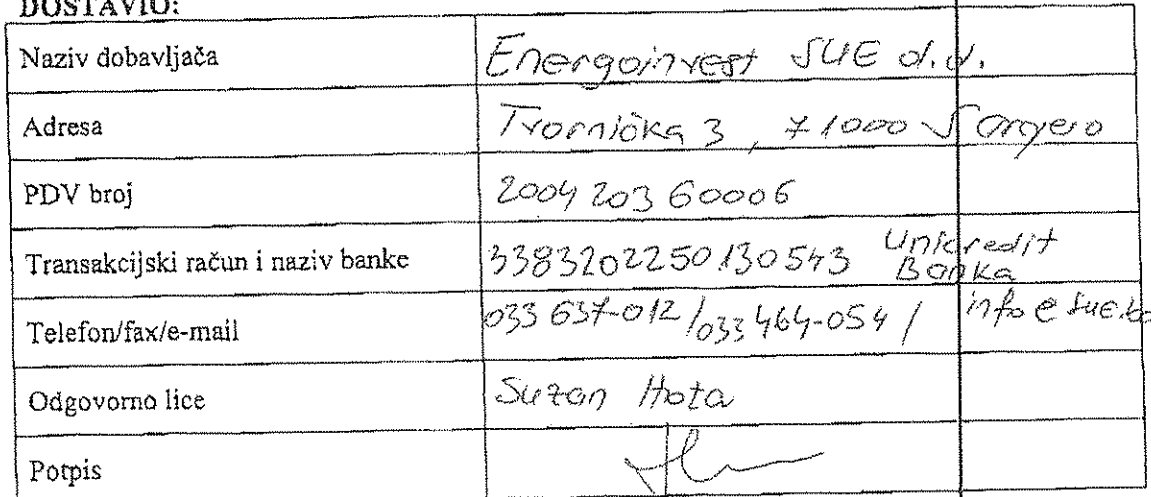 DOSTAVIO:
Naziv dobavljača Energoinvest SUE d.d.
Adresa Tvornička 3, 71000 Sarajevo
PDV broj 200420360006
Transakcijski račun i naziv banke 3383202250130543 Unicredit Banka
Telefon/fax/e-mail 033 637-012 / 033 464-054 / info@sue.ba
Odgovorno lice Suzan Hota
Potpis